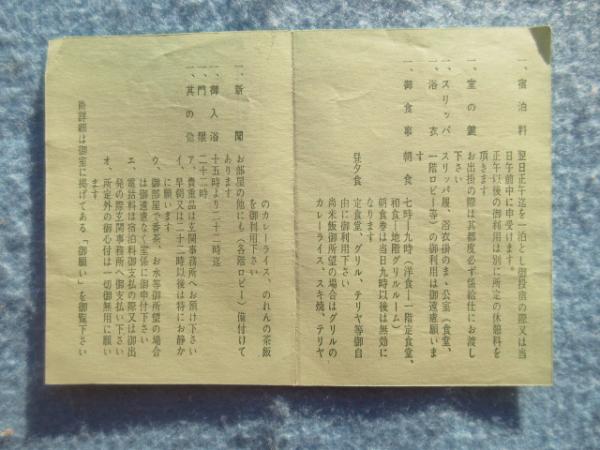 一、宿泊料 翌日正午迄を一泊とし御投宿の際又は当
日午前中に申受けます。
正午以後の御利用は別に所定の休憩料を
頂きます
一、室の鍵 お出掛の際は其都度必ず係給仕にお渡し
下さい
一、スリッパ、 スリッパ履、浴衣掛のまゝ公室(食堂、
一、浴衣 一階ロビー等)の御利用は御遠慮願いま
す
一、御食事 朝食 七時―九時(洋食―一階定食堂、
和食―地階グリルルーム)
朝食券は当日九時以後は無効に
なります
昼夕食 定食堂、グリル、テリヤ等御自
由に御利用下さい
尚米飯御所望の場合はグリルの
カレーライス、スキ焼、テリヤ
のカレーライス、のれんの茶飯
を御利用下さい
一、新聞 お部屋の他にも(各階ロビー)備付けて
あります
一、御入浴 十五時より二十二時迄
一、門限 二十二時
一、其の他 ア、貴重品は玄関事務所へお預け下さい
イ、早朝又は二十二時以後は特にお静か
に願います
ウ、御部屋で番茶、お水等御所望の場合
は御遠慮なく室係に御申付下さい
エ、電話料は宿泊料御支払の際又は御出
発の際玄関事務所へ御支払い下さい
オ、所定外の御心付は一切御無用に願い
ます
尚詳細は御室に掲げてある「御願い」を御覧下さい